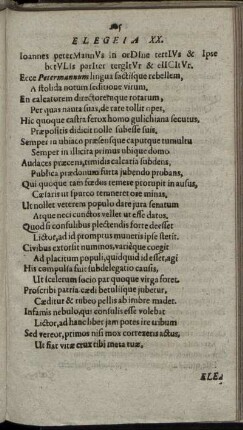 ELEGEIA XX.
Ioannes peterManuVs in orDIne tertIVs & Ipse
betVLIs parIter tergItVr & eIICItVr.
Ecce Petermannum lingua factisque rebellem,
Astolida notum seditione virum,
En calcatorem directoremque rotarum,
Per quas nauta suas, de rate tollit opes,
Hic quoque castra ferox homo gulichiana secutus,
Præpositis didicit nolle subesse suis,
Semper in ubiaco præsensque caputque tumultu
Semper in illicita primus ubique domo.
Audaces præcena, timidis calcaria subdens,
Publica prædonum furta jubendo probans,
Qui quoque tam fœdus temere prorupit in ausus,
Cæsaris ut spurco temneret ore minas,
Ut nollet veterem populo dare jura senatum
Atque neci cunctos vellet ut esse datus.
Quod si consulibus plectendis forte deesset
Lictor, ad id promptus muneris ipse stetit.
Civibus extorsit nummos, variéque coegit
Ad placitum populi, quidquid id esset, agi
His compulsa fuit subdelegatio causis,
Ut scelerum socio par quoque virga foret.
Proscribi patria cædi betuliique jubetur,
Cæditur & rubeo pellis ab imbre madet.
Infamis nebulo, qui consul is esse volebat
Lictor, ad hanc liber jam potes ire tribum
Sed vereor, primos nisi mox correxeris actus,
Ut fiat vitæ crux tibi meta tuæ.
ELE-